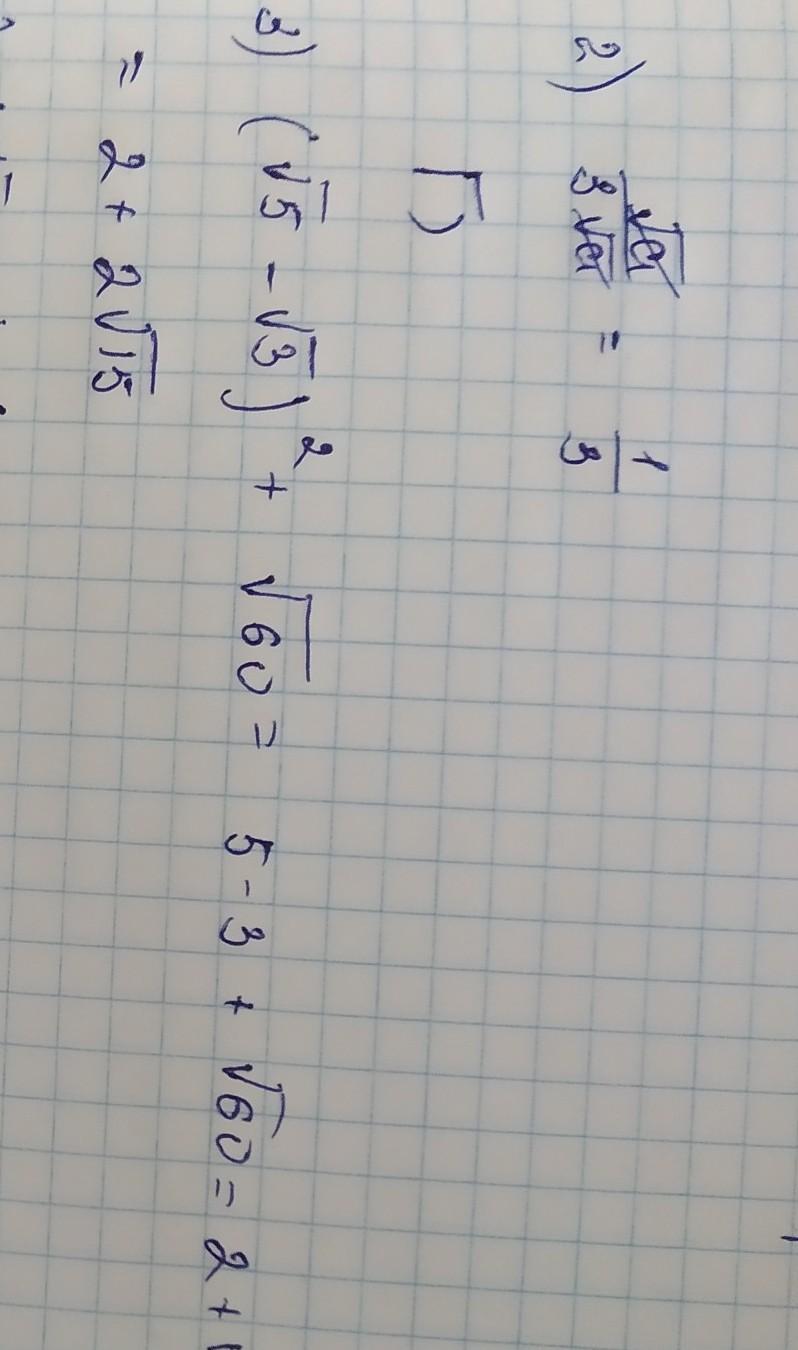 2) √a / 3√a = 1/3
Г)
3) (√5 - √3)² + √60 = 5 - 3 + √60 = 2 +
= 2 + 2√15